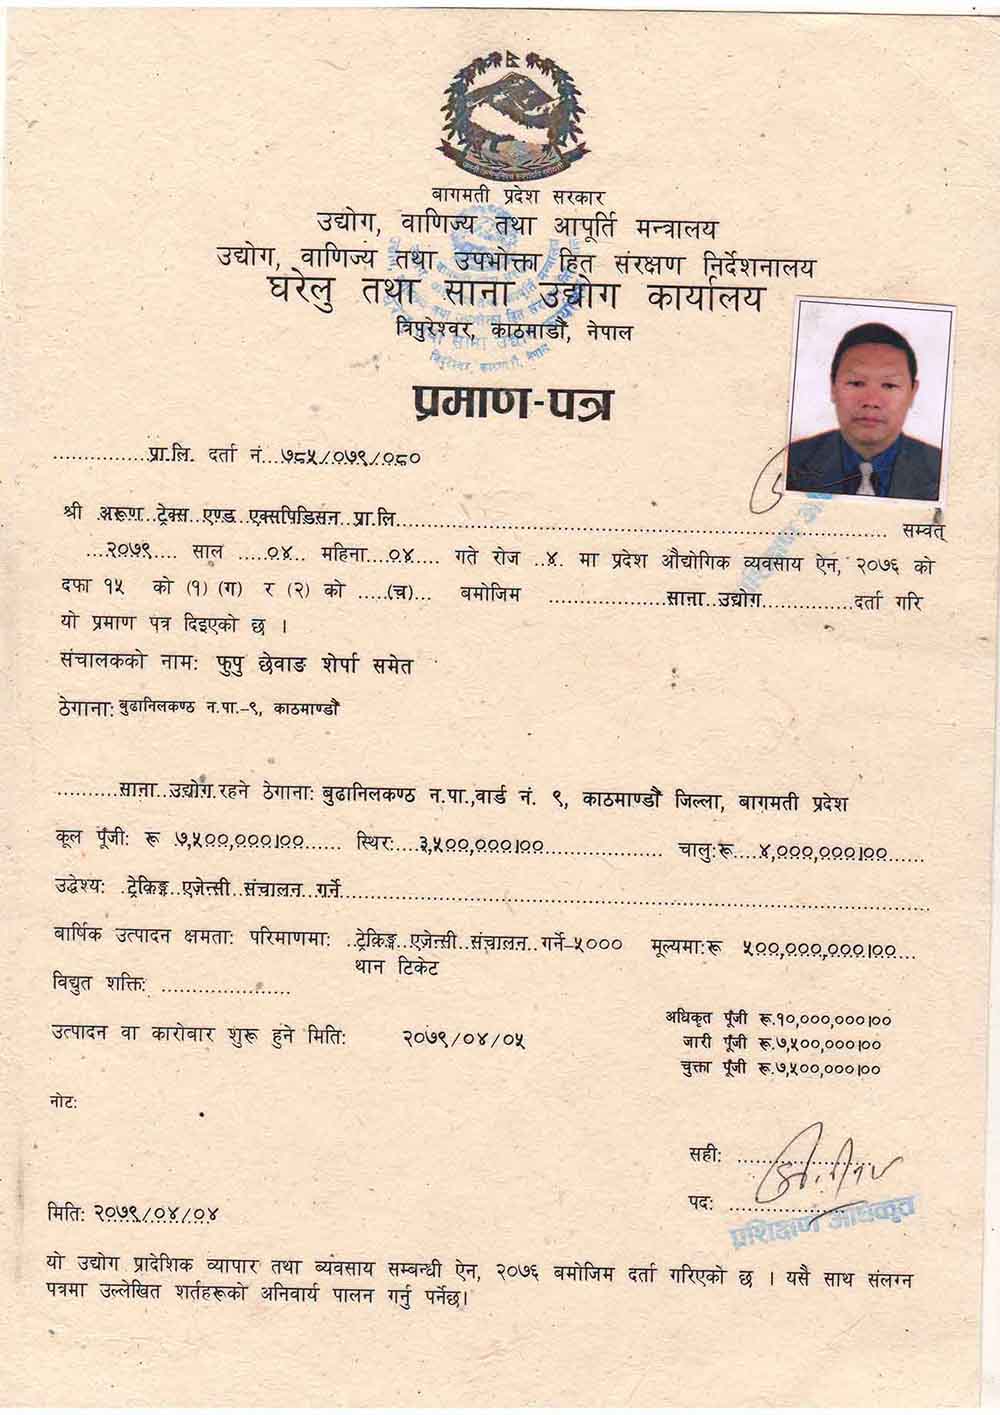 बागमती प्रदेश सरकार
उद्योग, वाणिज्य तथा आपूर्ति मन्त्रालय
उद्योग, वाणिज्य तथा उपभोक्ता हित संरक्षण निर्देशनालय
घरेलु तथा साना उद्योग कार्यालय
त्रिपुरेश्वर, काठमाडौं, नेपाल
प्रमाण-पत्र
................प्रा.लि. दर्ता नं...७८५/०७९/०८०
श्री अरूण ट्रेक्स एण्ड एक्सपिडिसन प्रा.लि.......... सम्वत्
...२०७९... साल ...०४... महिना...०४... गते रोज ..४. मा प्रदेश औद्योगिक व्यवसाय ऐन, २०७६ को
दफा १५ को (१) (ग) र (२) को .....(च)... बमोजिम ................साना उद्योग...............दर्ता गरि
यो प्रमाण पत्र दिइएको छ ।
संचालकको नाम: फुपु छेवाङ शेर्पा समेत
ठेगाना: बुढानिलकण्ठ न.पा.-९, काठमाण्डौं
..........साना उद्योग रहने ठेगाना: बुढानिलकण्ठ न.पा.,वार्ड नं. ९, काठमाण्डौं जिल्ला, बागमती प्रदेश
कूल पूँजी: रू ७,५००,०००।००...... स्थिर:....३,५००,०००।००................ चालु:रू....४,०००,०००।००....
उद्धेश्य: ट्रेकिङ्ग एजेन्सी संचालन गर्ने..........
बार्षिक उत्पादन क्षमता: परिमाणमा: ..ट्रेकिङ्ग एजेन्सी संचालन गर्ने-५००० मूल्यमा:रू ५००,०००,०००।००...
थान टिकेट
विद्युत शक्ति: ......................
उत्पादन वा कारोबार शुरू हुने मिति: २०७९/०४/०५
अधिकृत पूँजी रू.१०,०००,०००।००
जारी पूँजी रू.७,५००,०००।००
चुक्ता पूँजी रू.७,५००,०००।००
नोट:
सही: ..................
पद: ..................
प्रशिक्षण अधिकृत
मिति: २०७९/०४/०४
यो उद्योग प्रादेशिक व्यापार तथा व्यवसाय सम्बन्धी ऐन, २०७६ बमोजिम दर्ता गरिएको छ । यसै साथ संलग्न
पत्रमा उल्लेखित शर्तहरूको अनिवार्य पालन गर्नु पर्नेछ।